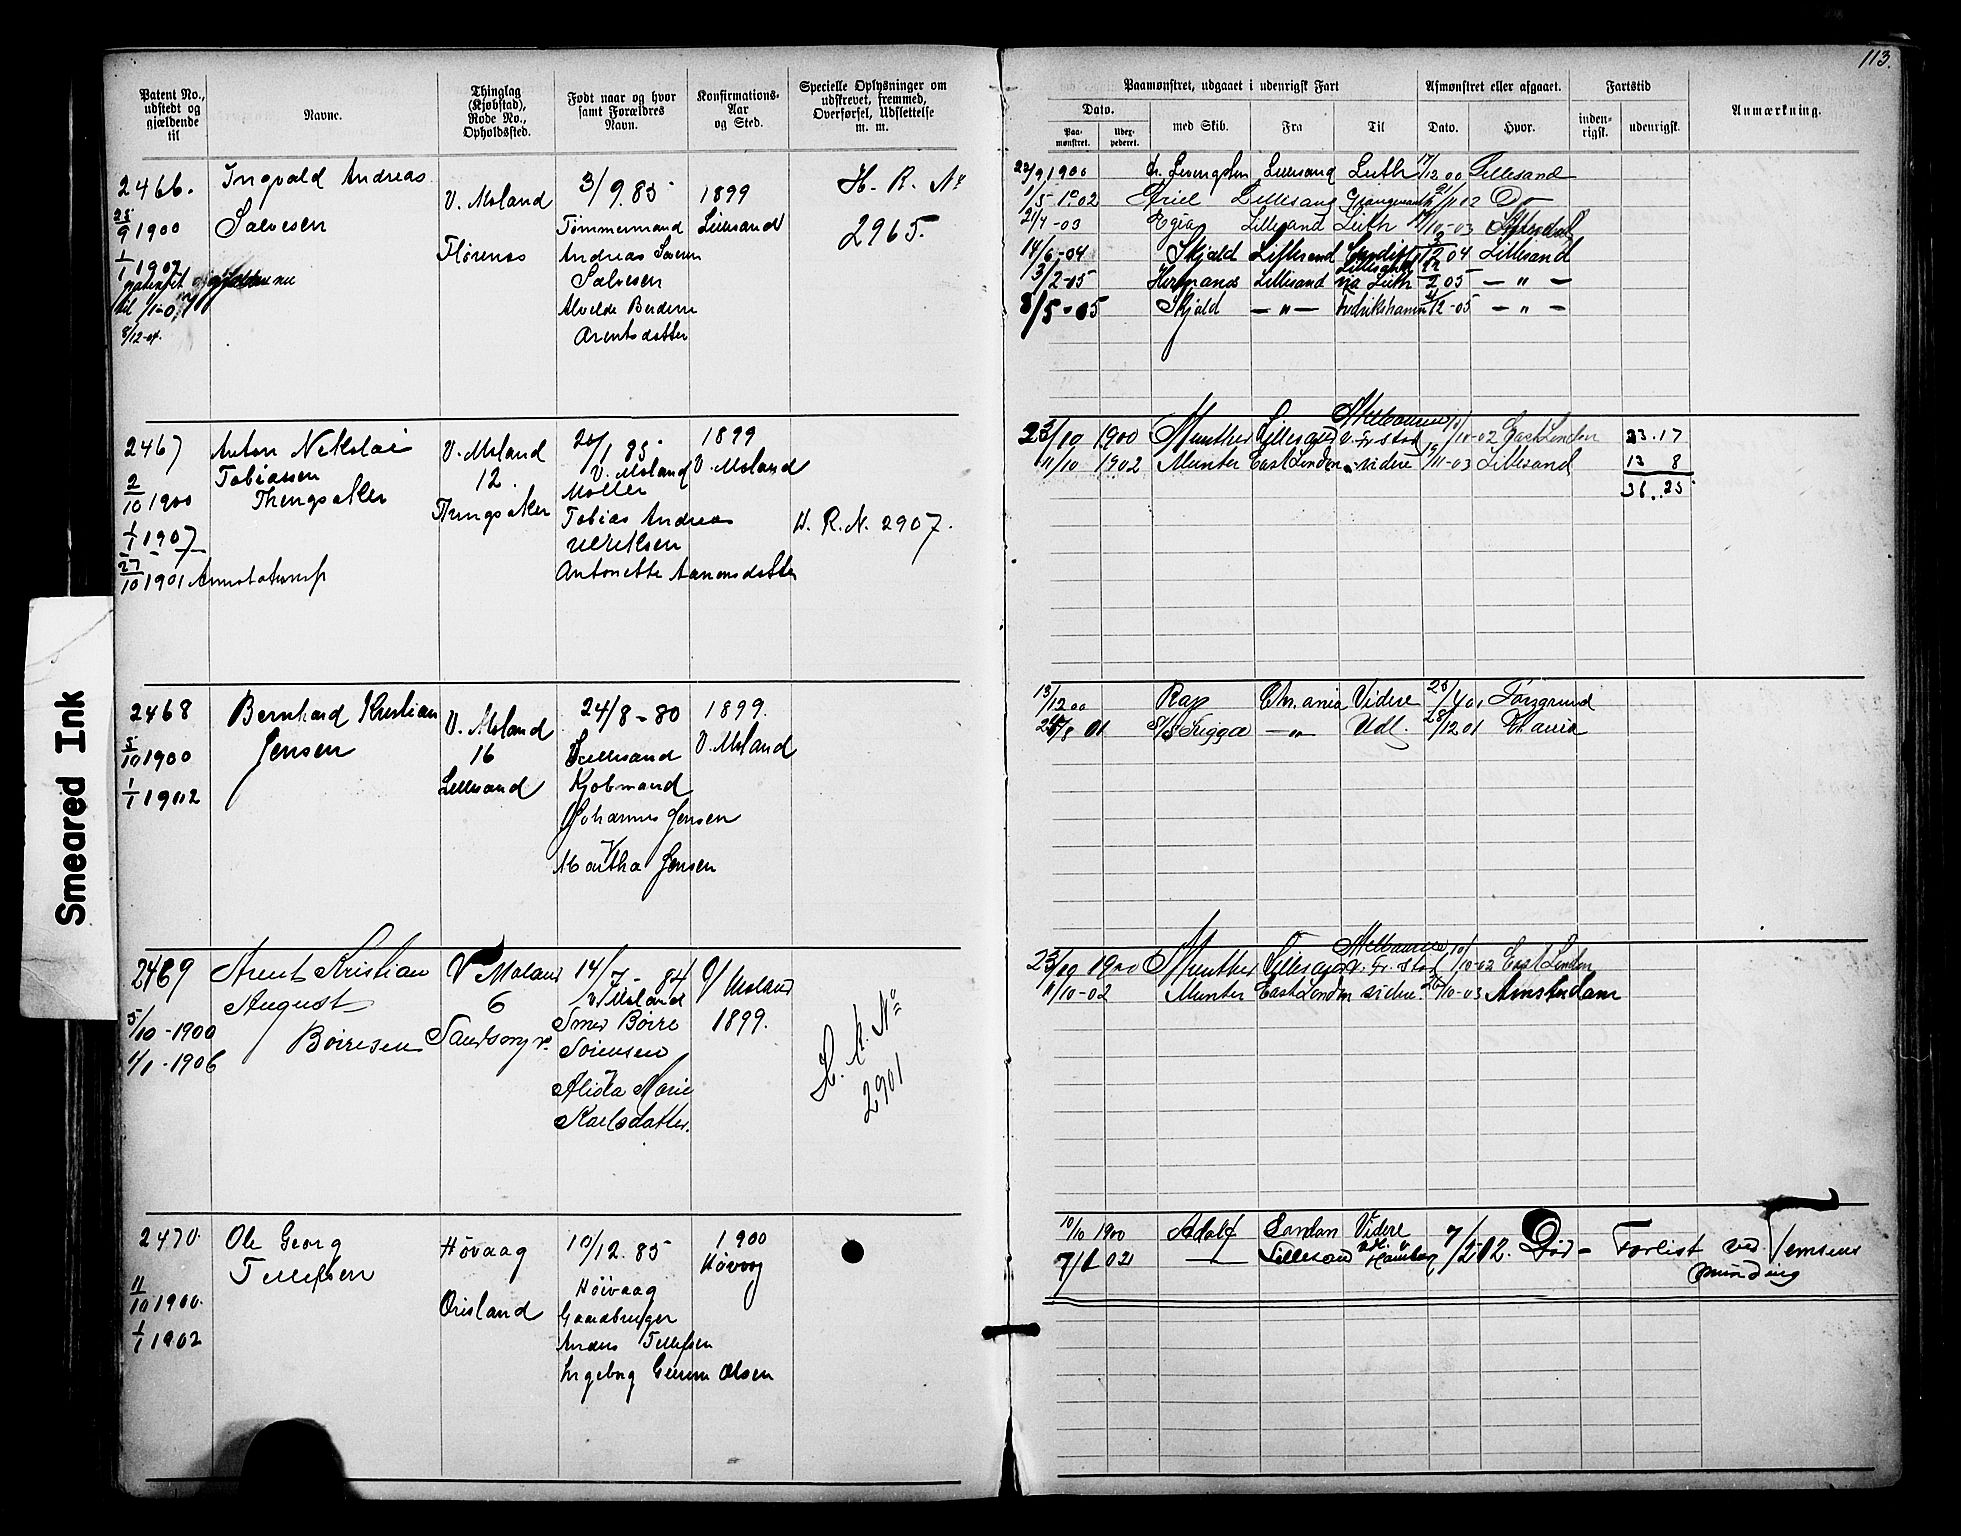 113.
Patent No., udstedt og gjældende til
Navne.
Thinglag (Kjøbstad), Rode No., Opholdssted.
Født naar og hvor samt Forældres Navn.
Konfirmations-Aar og Sted.
Specielle Oplysninger om udskrevet, fremmed, Overførsel, Udslettelse m. m.
Paamønstret, udgaaet i udenrigsk Fart
Afmønstret eller afgaaet.
Fartstid
Anmærkning.
Dato.
Paa-mønstret.
Uder-pederet.
med Skib.
Fra
Til
Dato.
Hvor.
inden-rigsk.
udenrigsk.
2466.
25/9 1900
1/1 1907
til 1/1-07
8/12-04.
Ingvald Andreas
Salvesen
V. Moland
Florenes
3/9.85
Tømmermand
Andreas Soren
Salvesen
Alvilde Berdine
Arentsdatter
1899
Lillesand
H. R. No
2965.
23/9 1900 Lillesand Leith 17/12 00 Lillesand
1/5-1902 Ariel Lillesand 21/11 02 Do
21/4-03 Egia Lillesand Leith 10-03
14/6-04 Skjold Lillesand Cardiff 04 Lillesand
13/2-05 Hermanos Lillesand Lillesand via Leith 2 05 - " -
8/5-05 Skjold - " - Fredrikshamn 12-05 - " -
2467
2/10 1900
1/1 1907
27/10 1901 Amotatump
Anton Nikolai
Tobiassen
Thingsaker
V. Moland
12.
Thingsaker
20/1 85
V. Moland
Møller
Tobias Andreas
Ulriksen
Antonette Aanensdatter
1899
V. Moland
H. R. N. 2907.
Melbourne
23/10 1900 Munther Lillesand v. Fr.stad 10/10-02 East London 23.17
11/10 1902 Munter East London videre 19/11-03 Lillesand 13 8
36.25
2468
5/10 1900
1/1 1902
Bernhard Kristian
Jensen
V. Moland
16
Lillesand
24/8-80
Lillesand
Kjøbmand
Johannes Jensen
Martha Jensen
1899.
V. Moland
13/12 00 Rap Chr.ania Videre 28/4 01 Porsgrund
24/8 01 S/S Frigga - " - Udl. 28/12 01 Kr.ania
2469
5/10-1900
1/1-1906
Arent Kristian
August
Boiresen
V Moland
6
14/7-84
V Moland
Smed Boire
Sørensen
Alida Marie
Karlsdatter.
V Moland
1899.
H. R. No
2901
Melbourne
23/10 1900 Munther Lillesand v. Fr.stad 10/10-02 East London
11/10-02 Munter East London videre. 26/10-03 Amsterdam
2470.
11/10 1900.
1/1 1902
Ole Georg
Tellefsen
Høvaag
Orisland
10/12.85
Høivaag
Gaardbruger
Anders Tellefsen
Ingeborg Olsen
1900
Høvaag
10/10 1900 Adolf London Videre
7/1 02 - " - Lillesand Udl. 7/2 02. Død - Forlist ved Temsens
munding
Smeared Ink